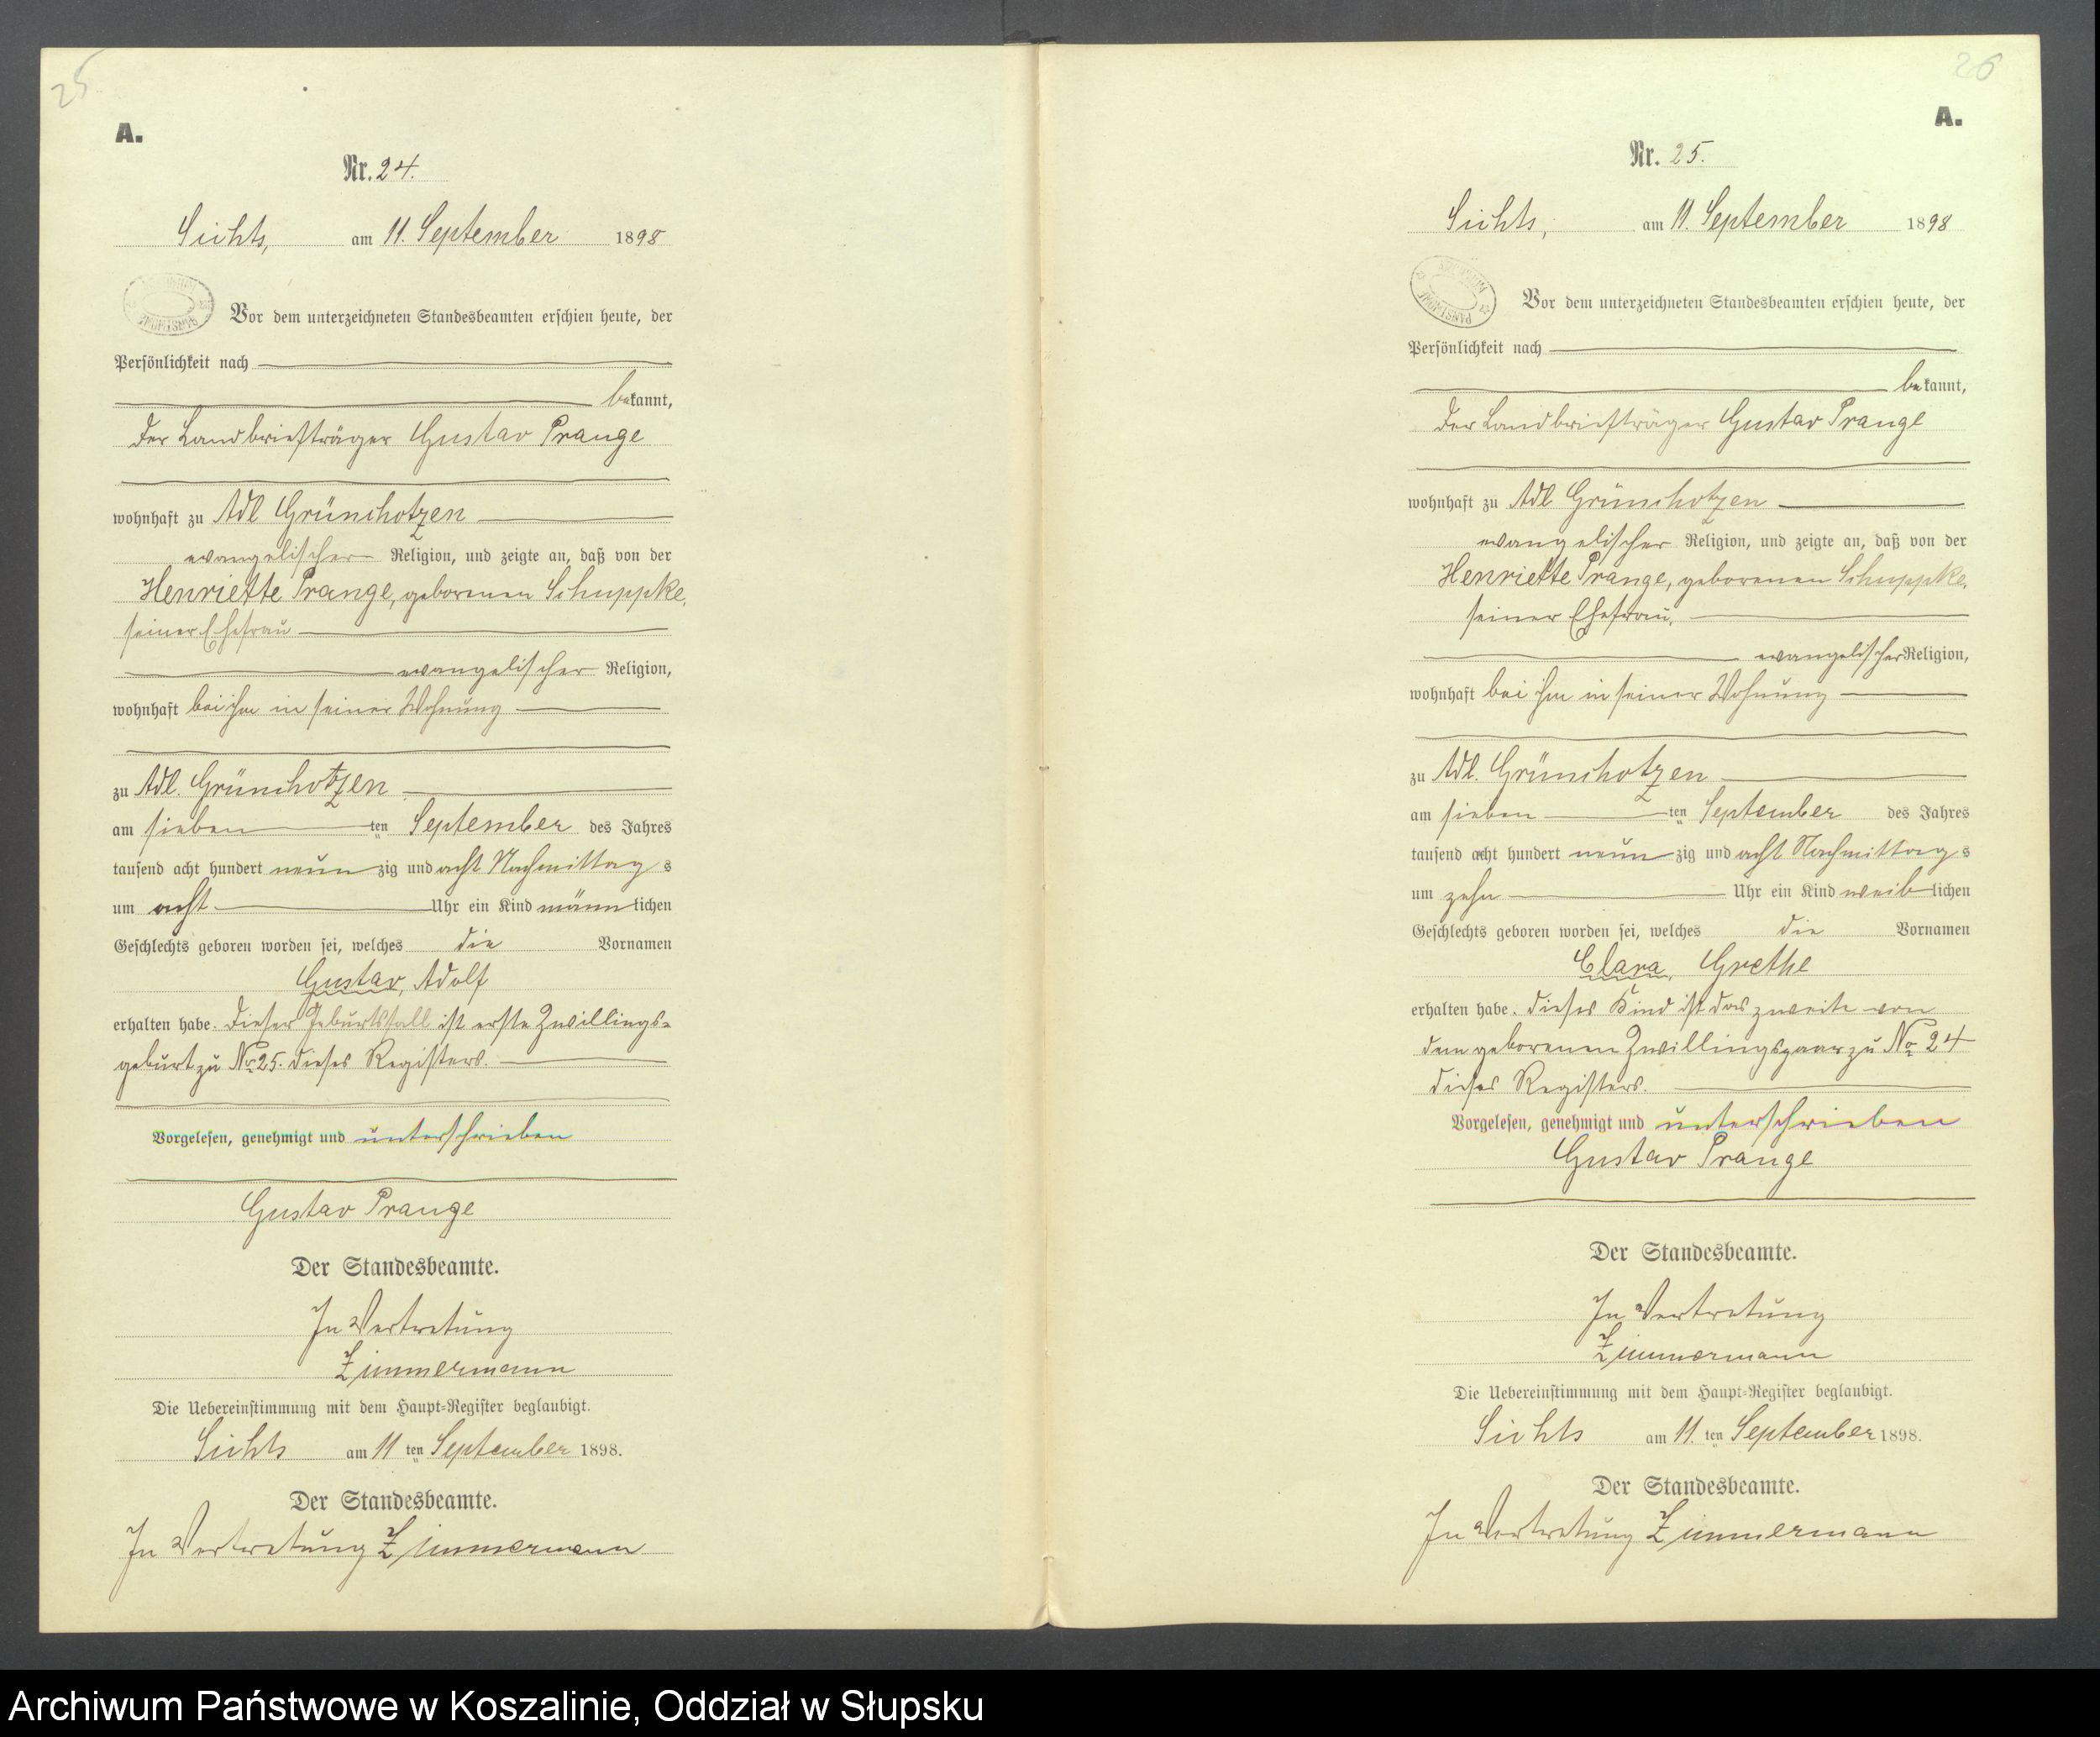 25
A.
Nr. 24.
Sichts, am 11. September 1898
Vor dem unterzeichneten Standesbeamten erschien heute, der
Persönlichkeit nach
bekannt,
der Landbriefträger Gustav Prange
wohnhaft zu Adl Grünchotzen
evangelischer Religion, und zeigte an, daß von der
Henriette Prange, geborenen Schuppke,
seiner Ehefrau
evangelischer Religion,
wohnhaft bei ihm in seiner Wohnung
zu Adl. Grünchotzen
am sieben ten September des Jahres
tausend acht hundert neunzig und acht Nachmittags
um acht Uhr ein Kind männlichen
Geschlechts geboren worden sei, welches die Vornamen
Gustav, Adolf
erhalten habe. Dieser Geburtsfall ist erste Zwillings-
geburt zu No 25. dieses Registers.
Vorgelesen, genehmigt und unterschrieben
Gustav Prange
Der Standesbeamte.
In Vertretung
Zimmermann
Die Uebereinstimmung mit dem Haupt-Register beglaubigt.
Sichts am 11 ten September 1898.
Der Standesbeamte.
In Vertretung Zimmermann
26
A.
Nr. 25.
Sichts, am 11. September 1898
Vor dem unterzeichneten Standesbeamten erschien heute, der
Persönlichkeit nach
bekannt,
der Landbriefträger Gustav Prange
wohnhaft zu Adl Grünchotzen
evangelischer Religion, und zeigte an, daß von der
Henriette Prange, geborenen Schuppke,
seiner Ehefrau,
evangelischer Religion,
wohnhaft bei ihm in seiner Wohnung
zu Adl. Grünchotzen
am sieben ten September des Jahres
tausend acht hundert neunzig und acht Nachmittags
um zehn Uhr ein Kind weiblichen
Geschlechts geboren worden sei, welches die Vornamen
Clara, Grethe
erhalten habe. Dieses Kind ist das zweite von
dem geborenen Zwillingspaar zu No 24
dieses Registers.
Vorgelesen, genehmigt und unterschrieben
Gustav Prange
Der Standesbeamte.
In Vertretung
Zimmermann
Die Uebereinstimmung mit dem Haupt-Register beglaubigt.
Sichts am 11. ten September 1898.
Der Standesbeamte.
In Vertretung Zimmermann
Archiwum Państwowe w Koszalinie, Oddział w Słupsku